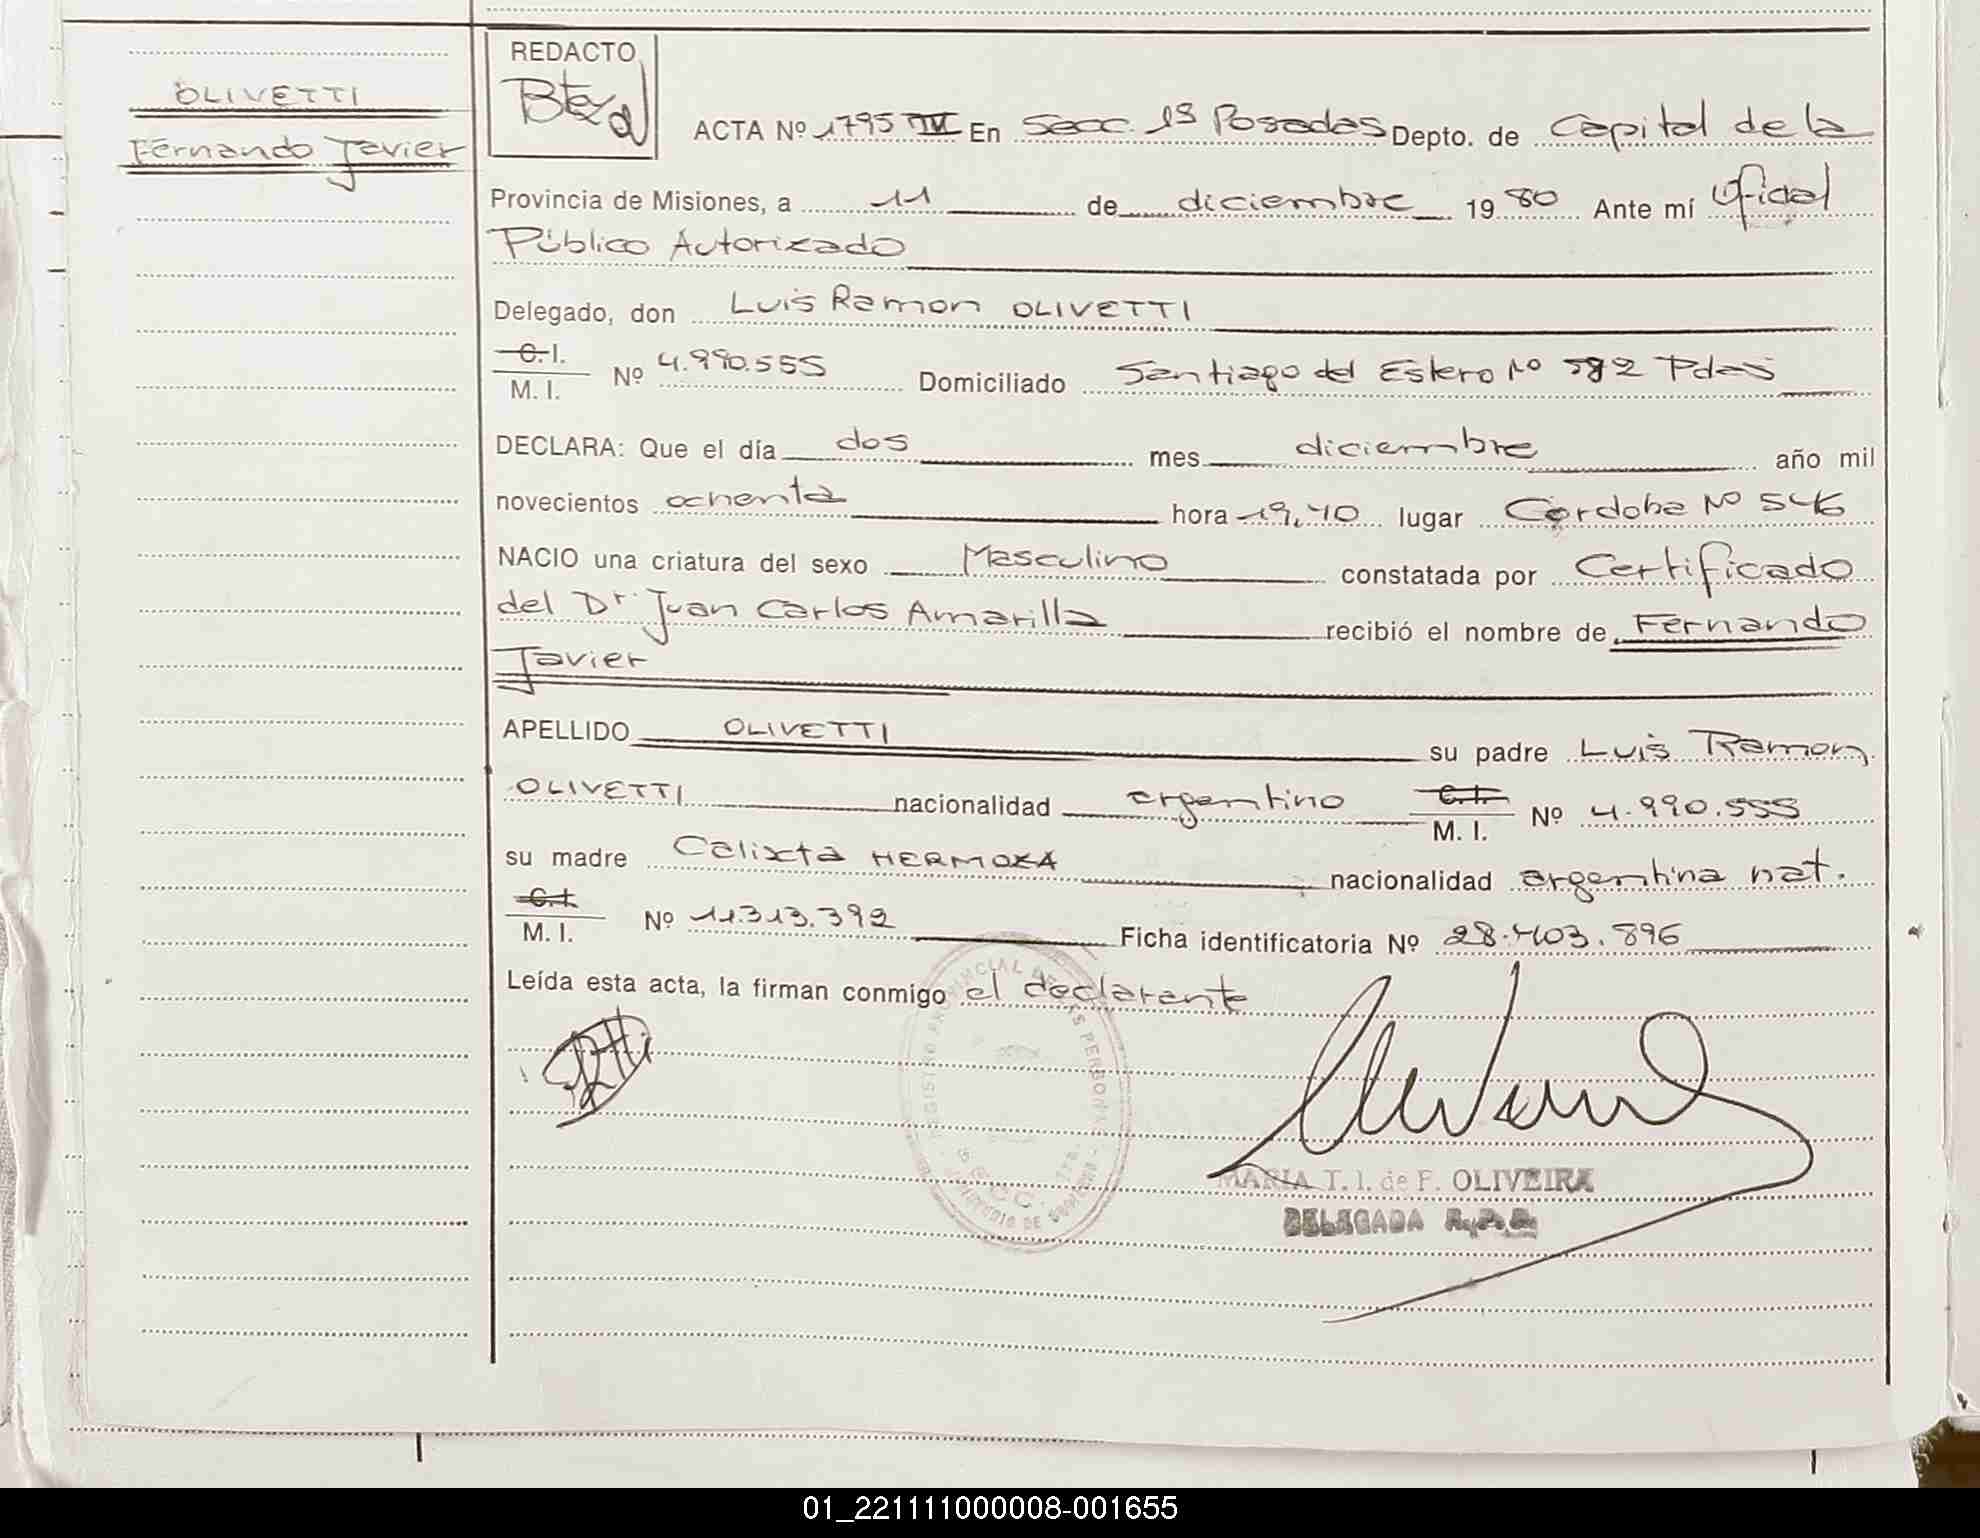 OLIVETTI
Fernando Javier
REDACTO
ACTA Nº 1795 TIV En Secc. 1ª Posadas Depto. de Capital de la
Provincia de Misiones, a 11 de diciembre 1980 Ante mí Oficial
Público Autorizado
Delegado, don Luis Ramon OLIVETTI
C.I. M. I. Nº 4.990.555 Domiciliado Santiago del Estero Nº 592 Pdas
DECLARA: Que el día dos mes diciembre año mil
novecientos ochenta hora 19,40 lugar Cordoba Nº 546
NACIO una criatura del sexo Masculino constatada por Certificado
del Dr. Juan Carlos Amarilla recibió el nombre de Fernando
Javier
APELLIDO OLIVETTI su padre Luis Ramon
OLIVETTI nacionalidad argentino C.I. M. I. Nº 4.990.555
su madre Calixta HERMOZA nacionalidad argentina nat.
C.I. M. I. Nº 11.313.392 Ficha identificatoria Nº 28.403.896
Leída esta acta, la firman conmigo el declarante
REGISTRO PROVINCIAL DE LAS PERSONAS
MINISTERIO DE GOBIERNO
MARIA T. I. de F. OLIVEIRA
DELEGADA R.P.P.
01_221111000008-001655